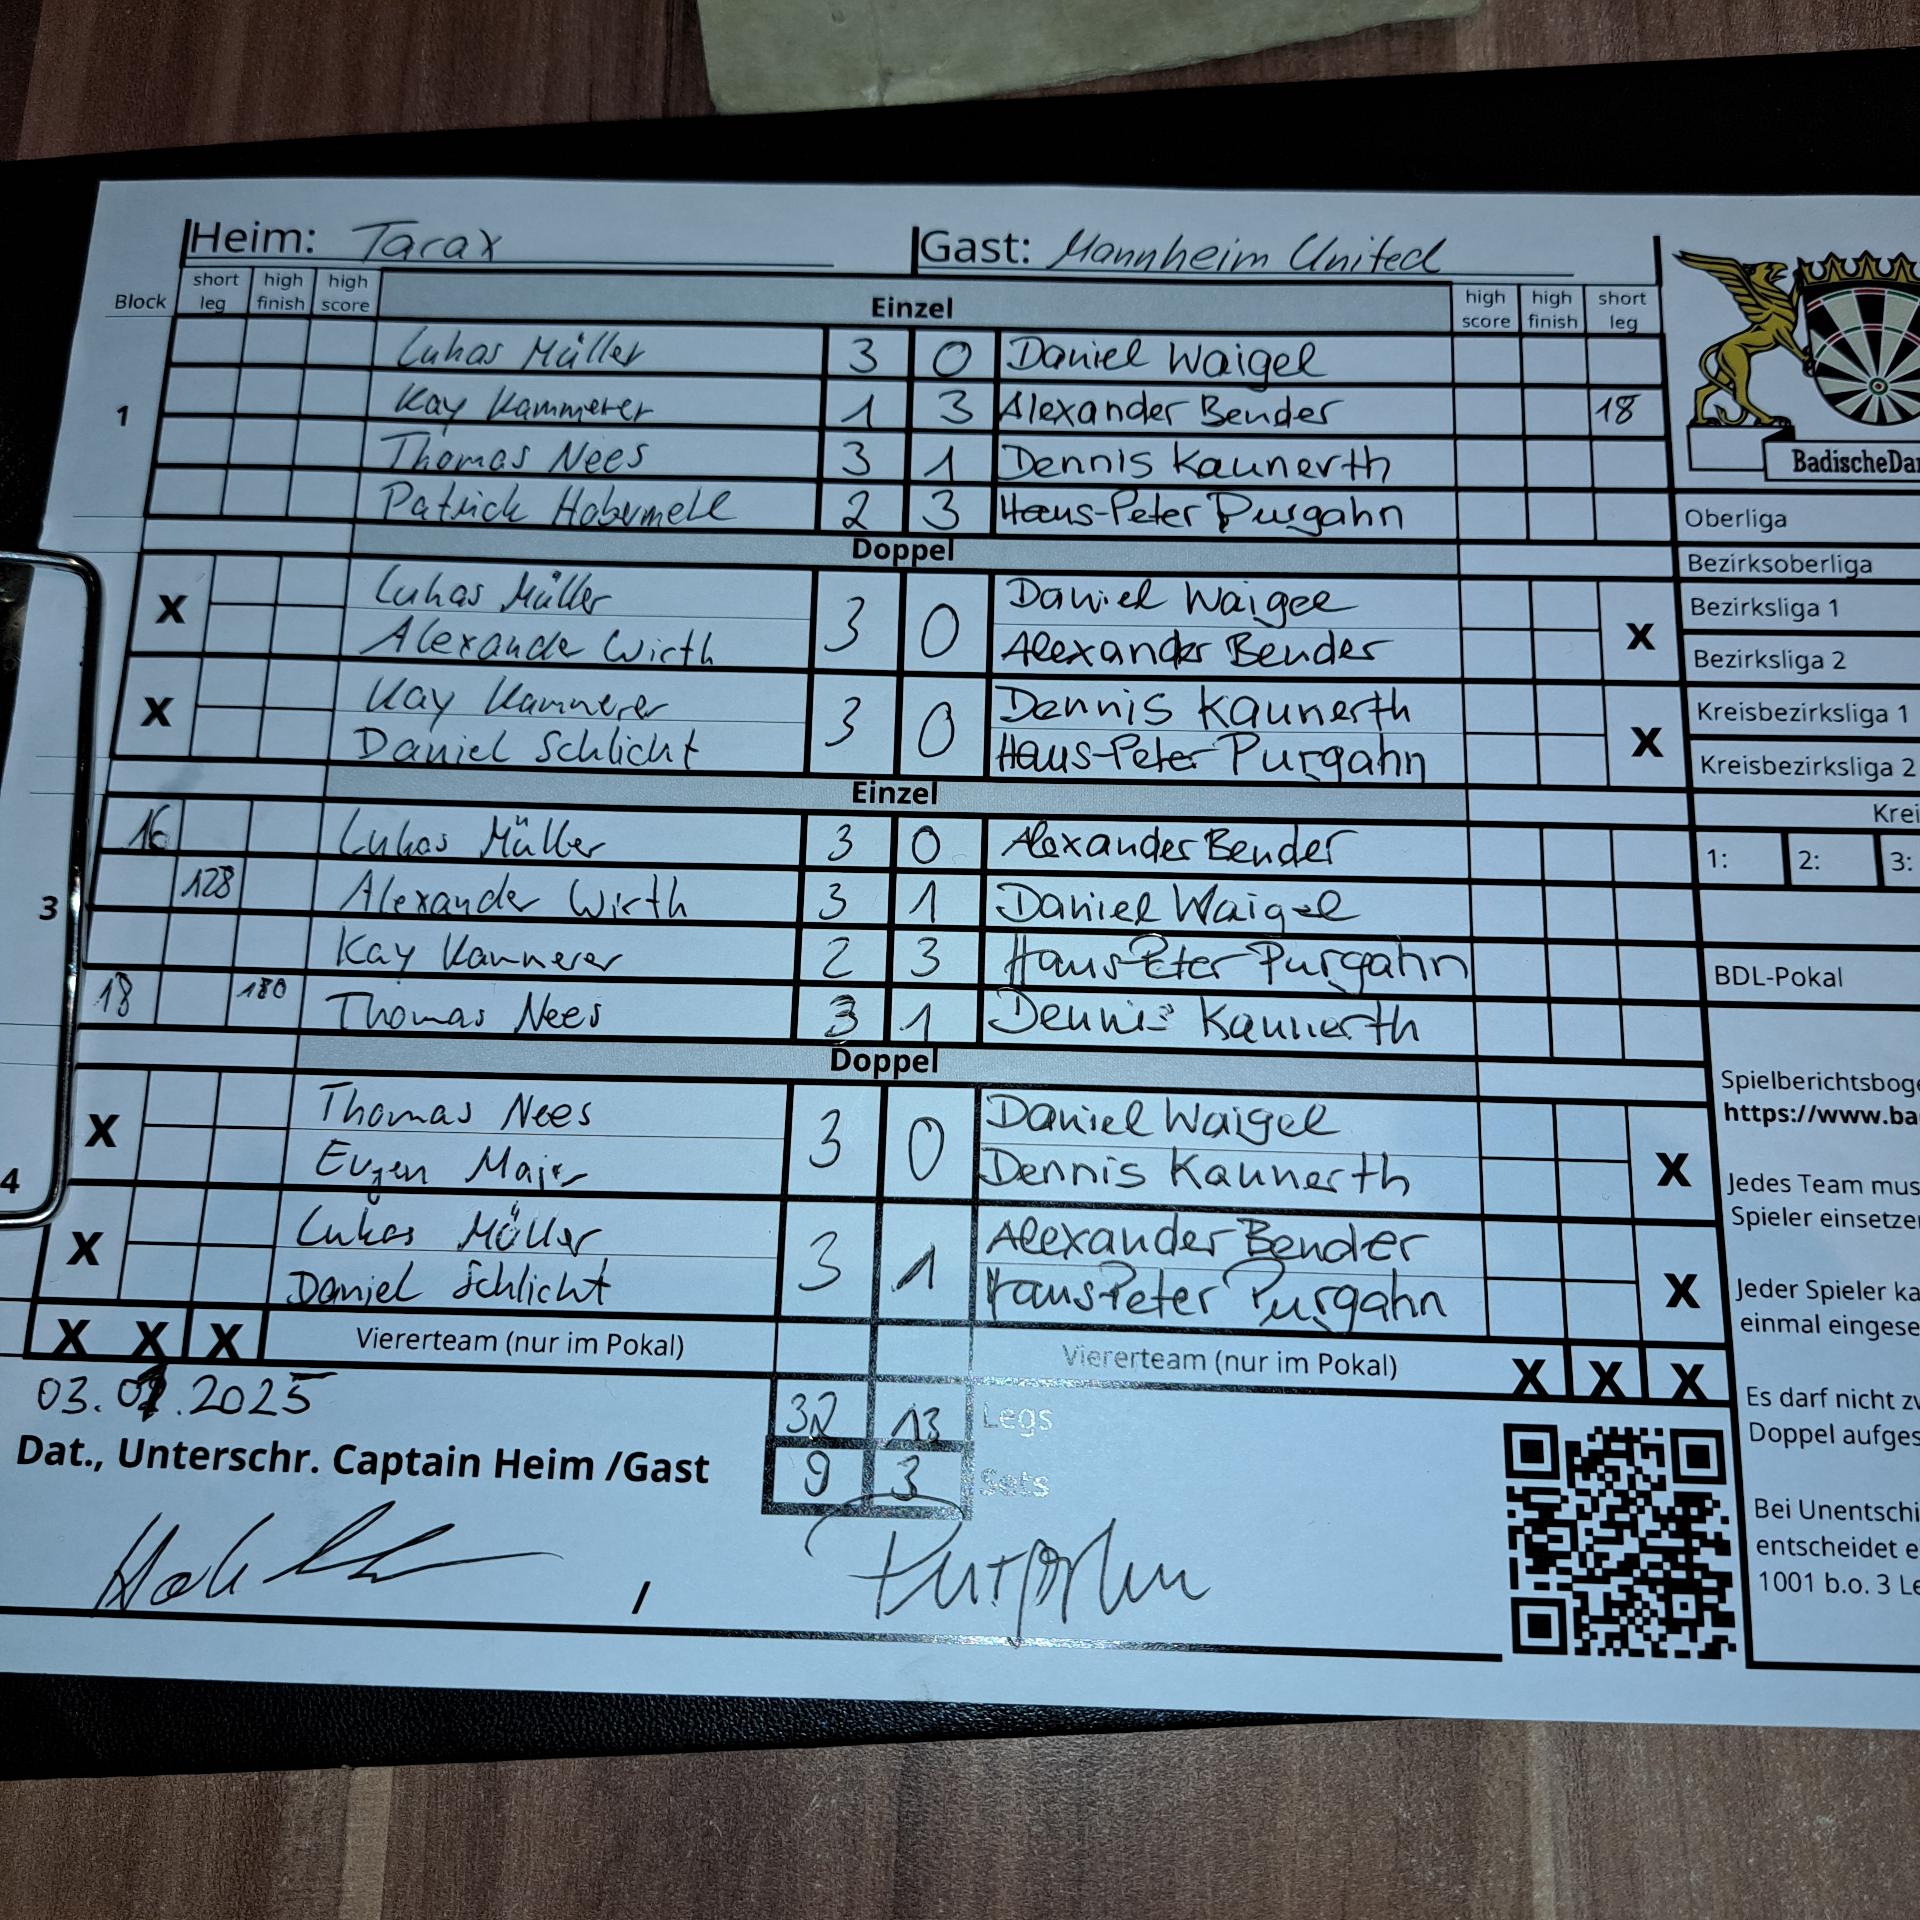 Heim: Tarax Gast: Mannheim United
Block short leg high finish high score Einzel high score high finish short leg
Lukas Müller 3 0 Daniel Waigel
1 Kay Kammerer 1 3 Alexander Bender 18
Thomas Nees 3 1 Dennis Kaunerth
Patrick Habermehl 2 3 Hans-Peter Purgahn
Doppel
X Lukas Müller 3 0 Daniel Waigel X
Alexander Wirth Alexander Bender
X Kay Kammerer 3 0 Dennis Kaunerth X
Daniel Schlicht Hans-Peter Purgahn
Einzel
16 Lukas Müller 3 0 Alexander Bender
3 128 Alexander Wirth 3 1 Daniel Waigel
Kay Kammerer 2 3 Hans-Peter Purgahn
18 180 Thomas Nees 3 1 Dennis Kaunerth
Doppel
X Thomas Nees 3 0 Daniel Waigel X
4 Eugen Maier Dennis Kaunerth
X Lukas Müller 3 1 Alexander Bender X
Daniel Schlicht Hans-Peter Purgahn
X X X Viererteam (nur im Pokal) Viererteam (nur im Pokal) X X X
03. .2025 32 13 Legs
Dat., Unterschr. Captain Heim /Gast 9 3 Sets
/
BadischeDar
Oberliga
Bezirksoberliga
Bezirksliga 1
Bezirksliga 2
Kreisbezirksliga 1
Kreisbezirksliga 2
Krei
1: 2: 3:
BDL-Pokal
Spielberichtsboge
https://www.ba
Jedes Team mus
Spieler einsetzen
Jeder Spieler ka
einmal eingese
Es darf nicht zv
Doppel aufges
Bei Unentschi
entscheidet e
1001 b.o. 3 Le